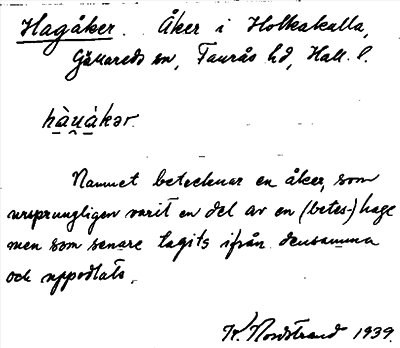 Hagåker. Åker i Holkakulla,
Gällareds sn, Faurås hd, Hall. l.
hàu̯ákər.
Namnet betecknar en åker, som
ursprungligen varit en del av en (betes-) hage
men som senare tagits ifrån densamma
och uppodlats.
K. Nordstrand 1939.